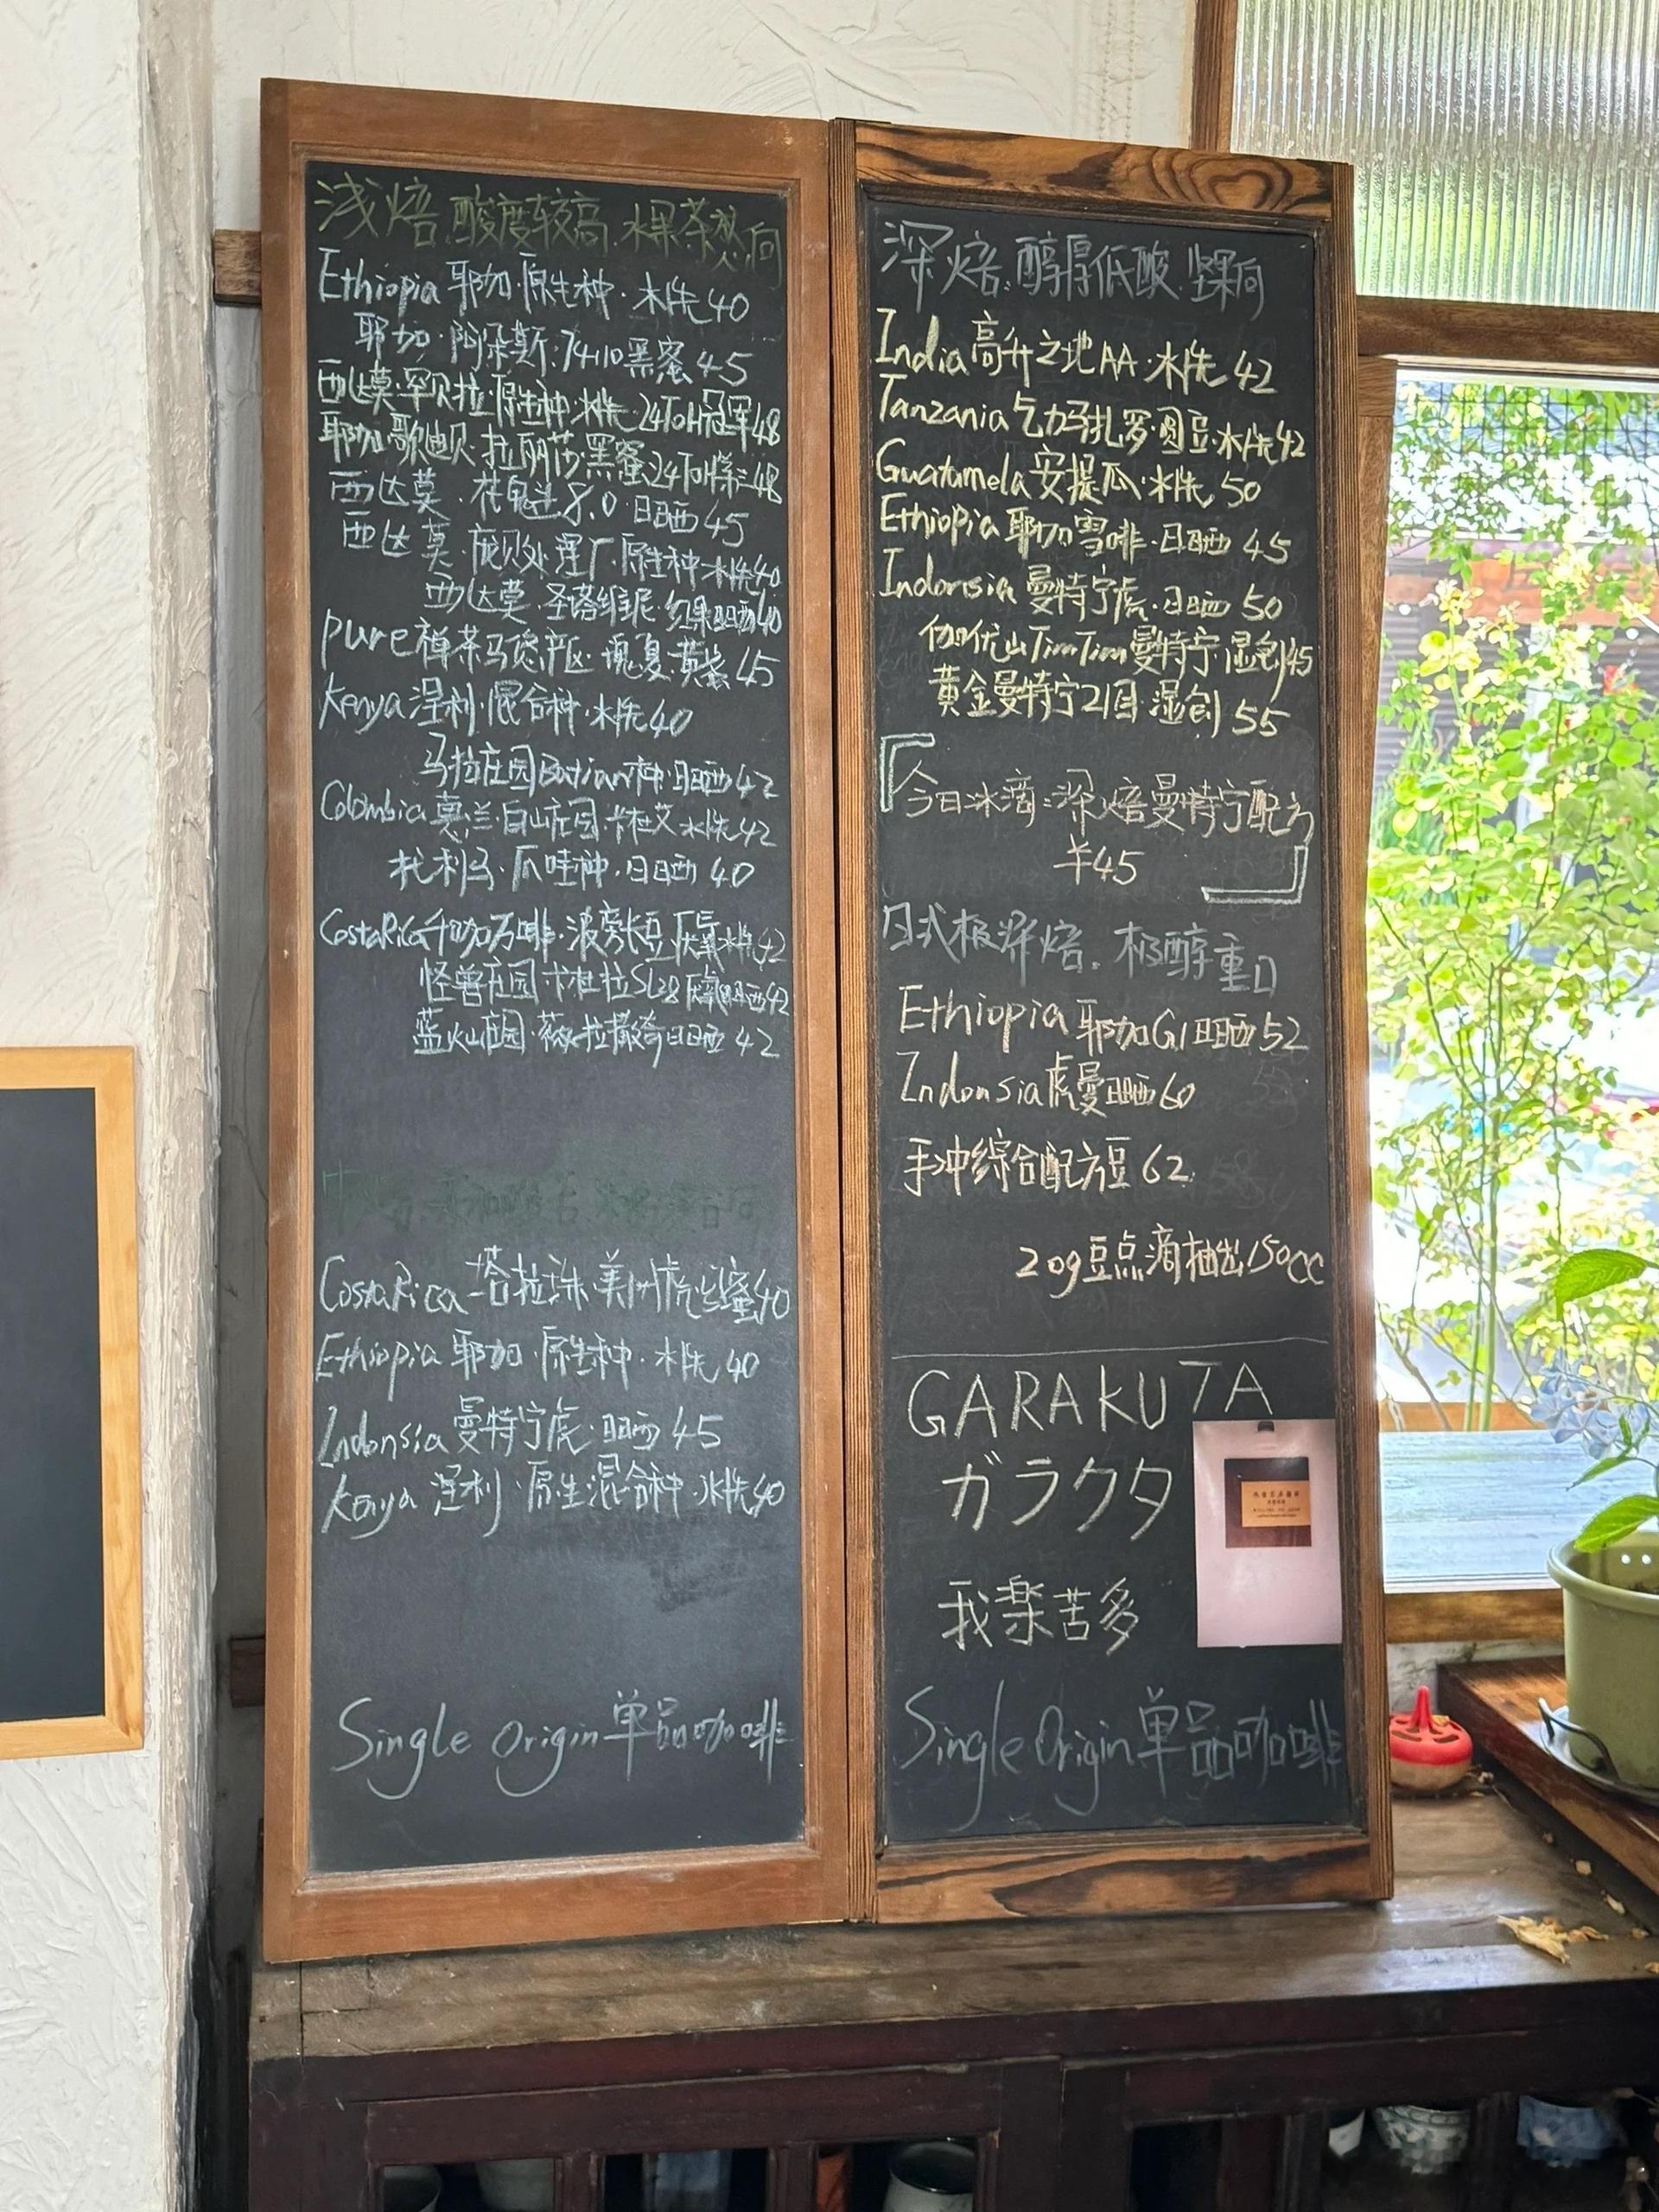 浅焙.酸度较高.水果茶感向
Ethiopia 耶加·原生种·水洗40
耶加·阿朵斯·74110黑蜜45
西达莫·罕贝拉·原生种·水洗·24ToH冠军48
耶加歌迪贝·拉丽莎·黑蜜24ToH 48
西达莫·花魁8.0·日晒45
西达莫·庞贝处理厂·原生种·水洗40
西达莫·圣塔维尼·红果日晒40
pure 禅茶马德产区·瑰夏·黄蜜45
Kenya 涅利·混合种·水洗40
马拉庄园Batian种·日晒42
Colombia 慕兰·白山庄园·卡杜艾水洗42
托利马·爪哇种·日晒40
CostaRica 卡咖万啡·波旁长豆厌氧水洗42
怪兽庄园·卡杜拉SL28厌氧日晒42
蓝火山庄园·薇拉撒奇日晒42
CostaRica 塔拉珠·美洲虎·蜜40
Ethiopia 耶加·原生种·水洗40
Indonsia 曼特宁虎·日晒45
Kenya 涅利·原生混合种·水洗40
Single Origin 单品咖啡
深焙.醇厚低酸.坚果向
India 高升之地AA·水洗42
Tanzania 乞力马扎罗·圆豆·水洗42
Guatamela 安提瓜·水洗50
Ethiopia 耶加雪啡·日晒45
Indonsia 曼特宁虎·日晒50
伽优山TimTim曼特宁·湿刨45
黄金曼特宁21目·湿刨55
「今日冰滴:深焙曼特宁配方
￥45」
日式极深焙.极醇重口
Ethiopia 耶加G1日晒52
Indonsia 虎曼日晒60
手冲综合配方豆62
20g豆点滴抽出150cc
GARAKUTA
ガラクタ
我楽苦多
Single Origin 单品咖啡